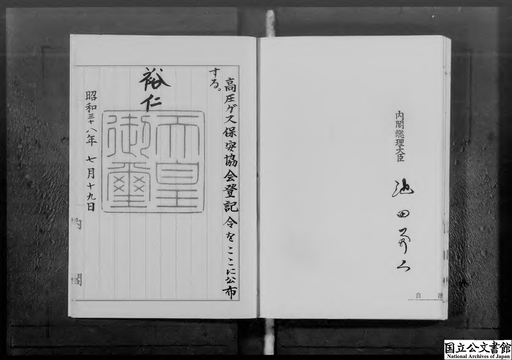 高圧ガス保安協会登記令をここに公布
する。
裕仁
天皇御璽
昭和三十八年七月十九日
内閣
内閣総理大臣
池田勇人
国立公文書館
National Archives of Japan